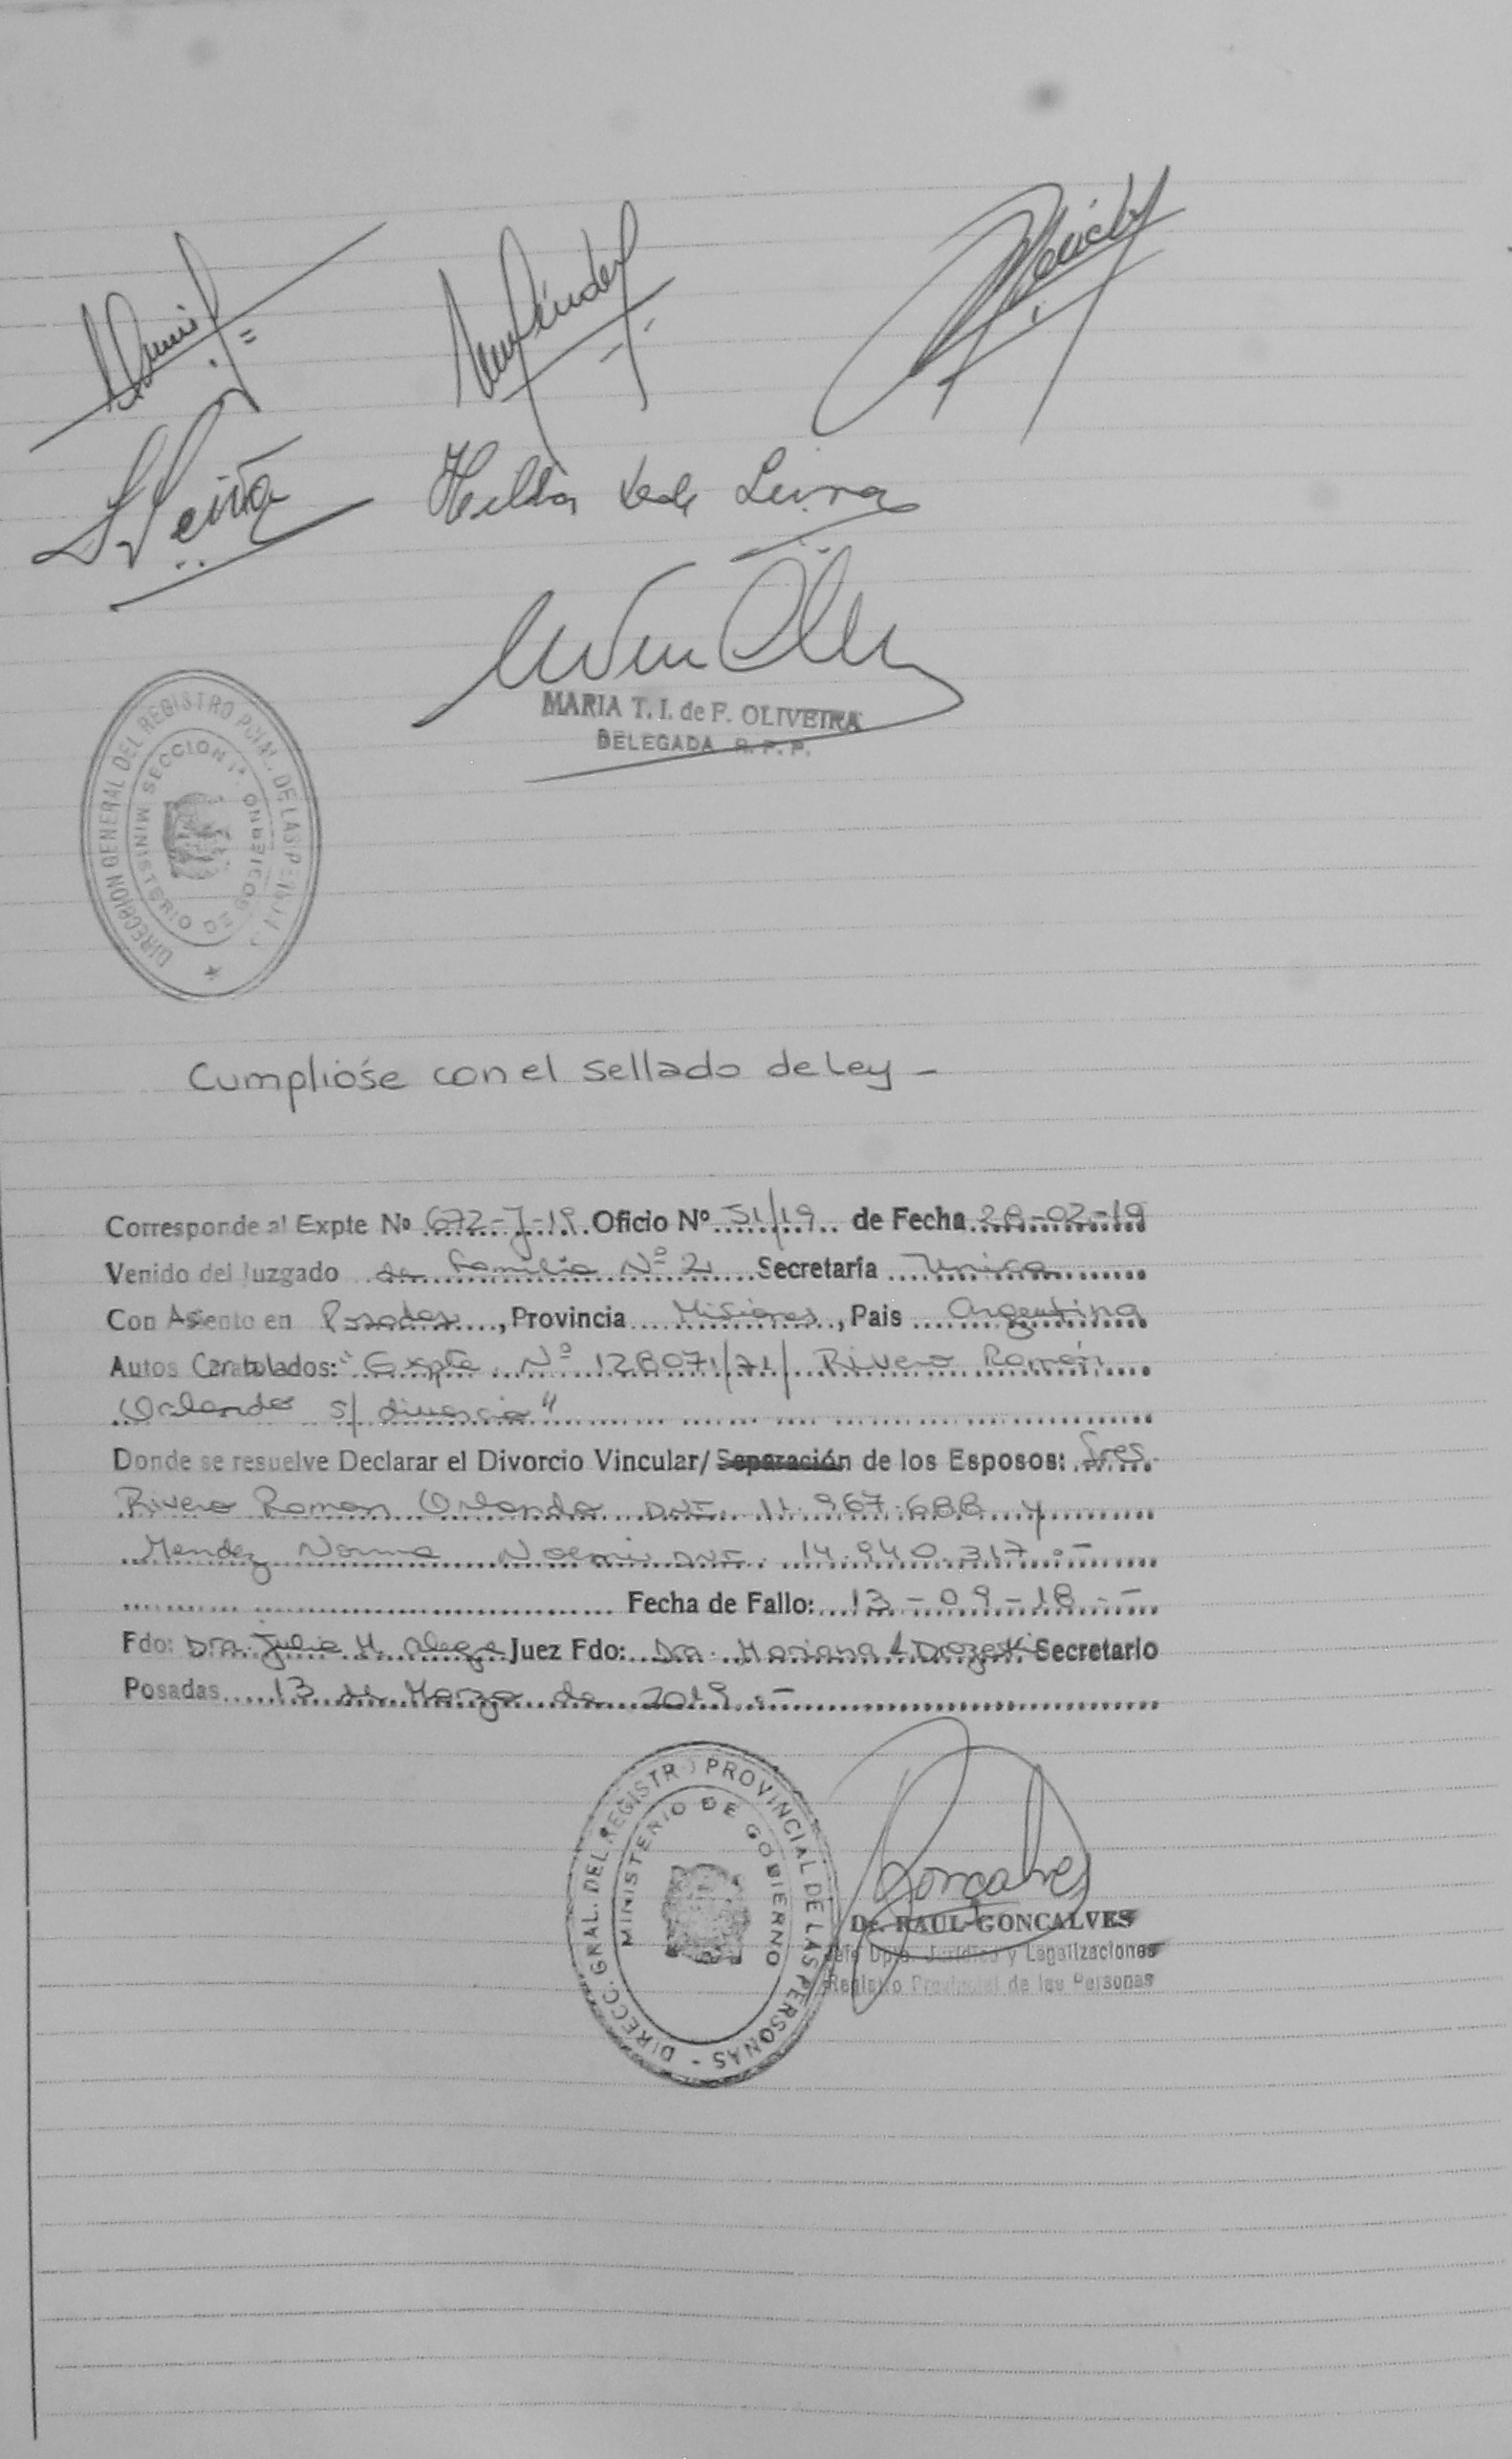 Hilda de Leiva
MARIA T. I. de F. OLIVEIRA
DELEGADA R. P. P.
DIRECCION GENERAL DEL REGISTRO PCIAL. DE LAS
MINISTERIO DE GOBIERNO
SECCION 1ª
Cumplióse con el sellado de Ley -
Corresponde al Expte Nº 672-J-19. Oficio Nº 51/19 de Fecha 28-02-19
Venido del Juzgado de Familia Nº 2 Secretaría Unica
Con Asiento en Posadas, Provincia Misiones, Pais Argentina
Autos Caratulados: "Expte Nº 128071/71/ Rivero Ramón
Orlando s/ divorcio"
Donde se resuelve Declarar el Divorcio Vincular/ Separación de los Esposos: Sres.
Rivero Ramon Orlando DNI. 11.967.688 y
Mendez Norma Noemi DNI. 14.940.317.-
Fecha de Fallo: 13-09-18.-
Fdo: Dra. Julia M. Alegre Juez Fdo: Dra. Mariana Secretario
Posadas 13 de Marzo de 2019.-
DIRECC. GRAL. DEL REGISTRO PROVINCIAL DE LAS PERSONAS -
MINISTERIO DE GOBIERNO
Goncalves
Dr. RAUL GONCALVES
Jefe Dpto. Jurídico y Legalizaciones
Registro Provincial de las Personas